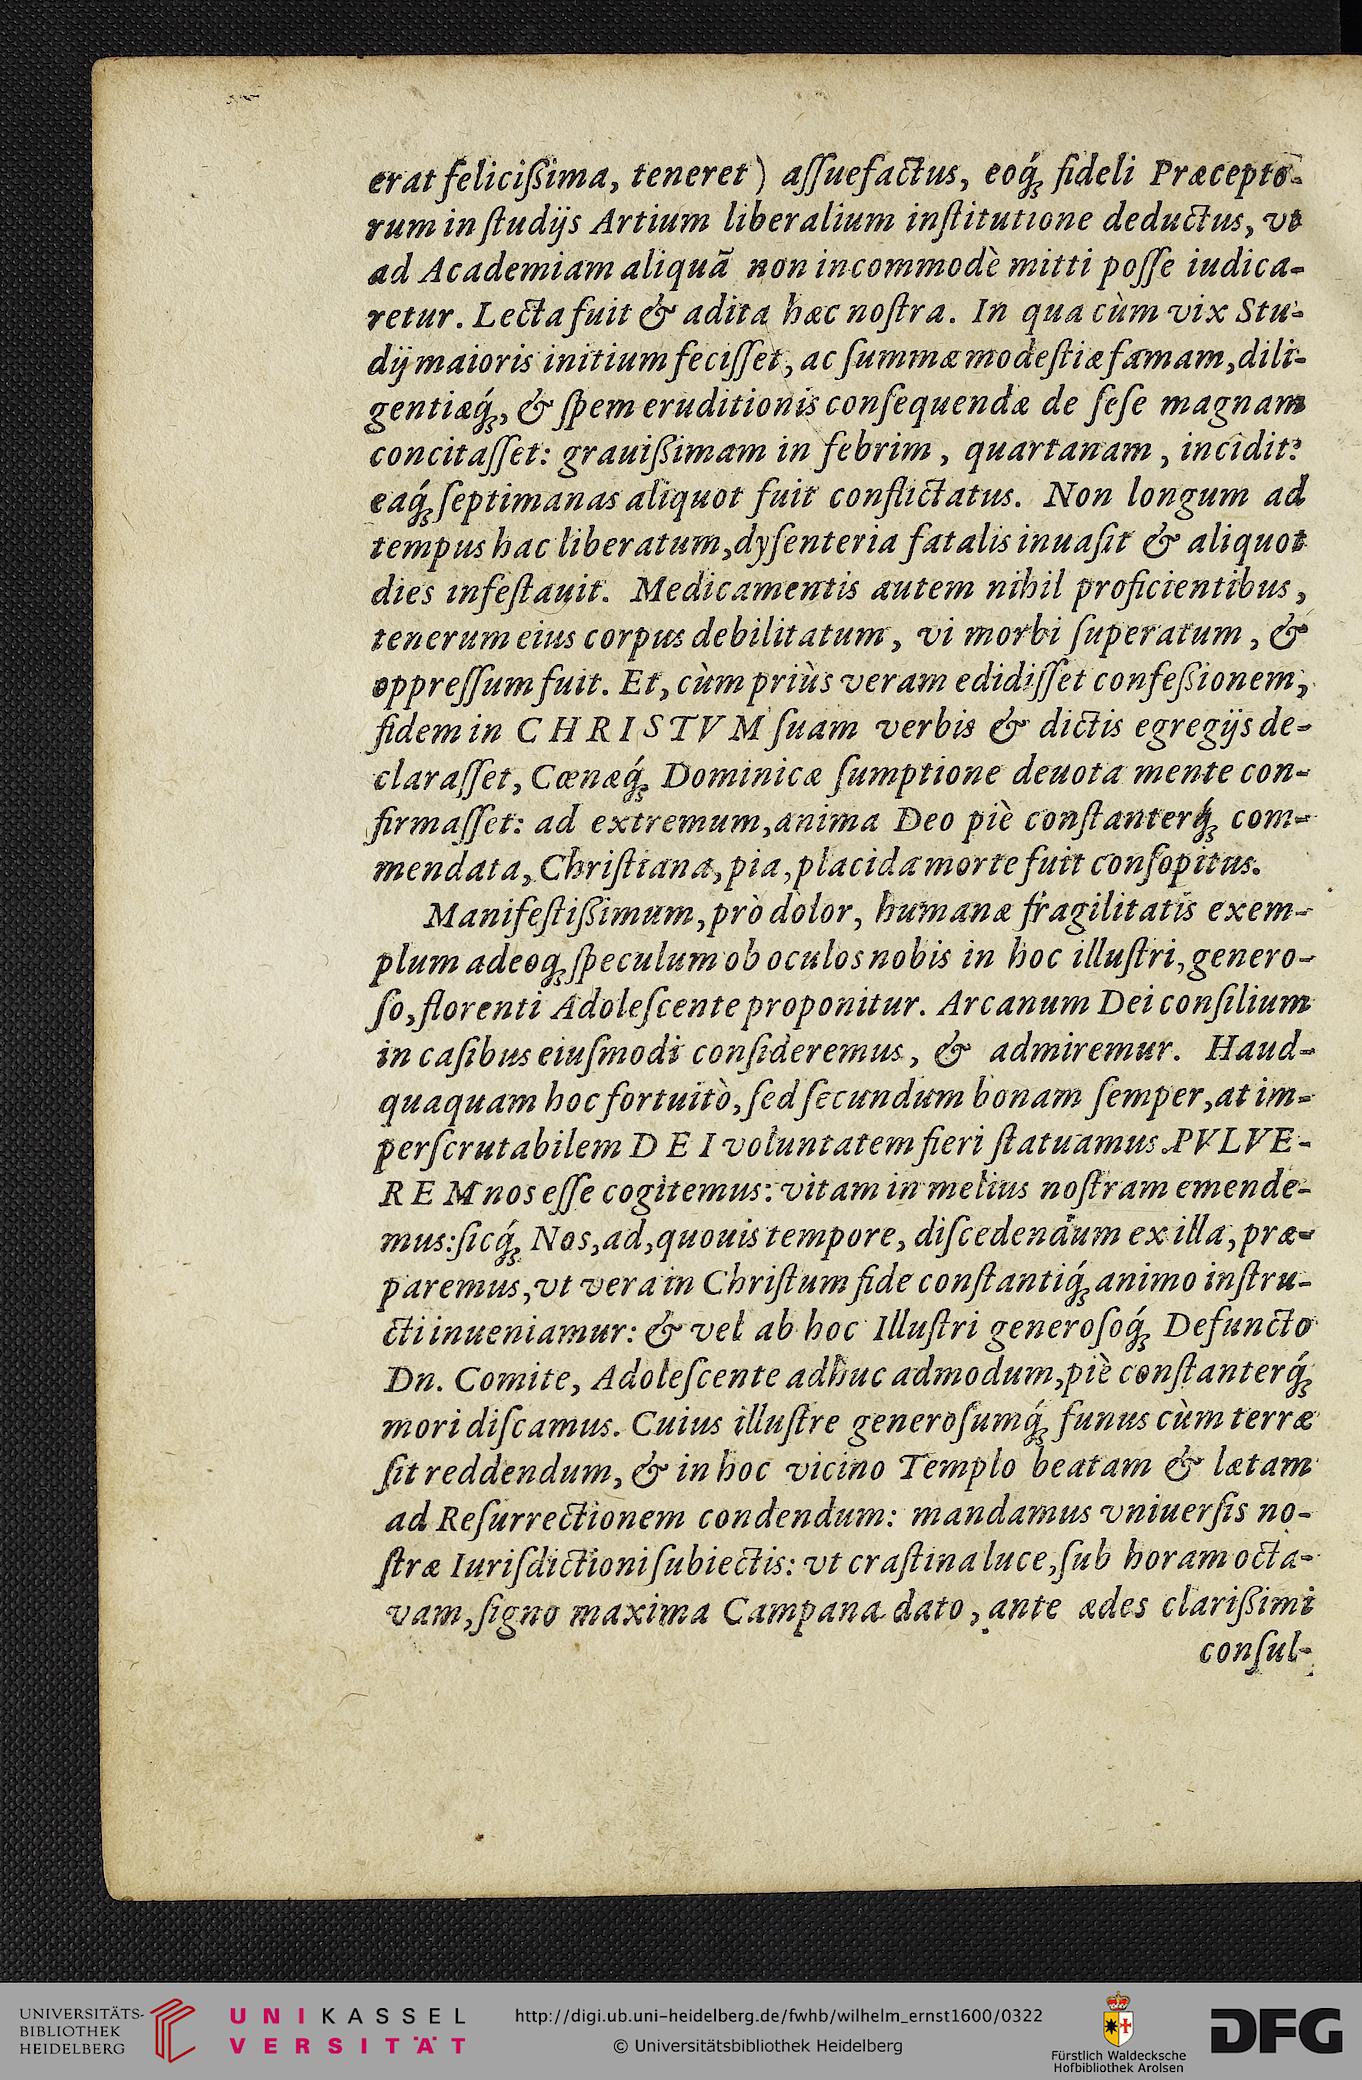 erat feliciſſima, teneret) aſſuefactus, eoq́ꝫ fideli Præcepto-
rum in ſtudijs Artium liberalium inſtitutione deductus, vt
ad Academiam aliquã non incommodè mitti poſſe iudica-
retur. Lecta fuit & adita hæc noſtra. In qua cùm vix Stu-
dij maioris initium feciſſet, ac ſummæ modeſtiæ famam, dili-
gentiæq́ꝫ, & ſpem eruditionis conſequendæ de ſeſe magnam
concitaſſet: grauißimam in febrim, quartanam, incidit:
eaq́ꝫ ſeptimanas aliquot fuit conflictatus. Non longum ad
tempus hac liberatum, dyſenteria fatalis inuaſit & aliquot
dies infeſtauit. Medicamentis autem nihil proficientibus,
tenerum eius corpus debilitatum, vi morbi ſuperatum, &
oppreſſum fuit. Et, cùm priùs veram edidiſſet confeßionem,
fidem in CHRISTVM ſuam verbis & dictis egregijs de-
claraſſet, Cœnæq́ꝫ Dominicæ ſumptione deuota mente con-
firmaſſet: ad extremum, anima Deo piè conſtanterq́ꝫ com-
mendata, Chriſtiana, pia, placida morte fuit conſopitus.
Manifeſtißimum, prò dolor, humanæ fragilitatis exem-
plum adeoqꝫ ſpeculum ob oculos nobis in hoc illuſtri, genero-
ſo, florenti Adoleſcente proponitur. Arcanum Dei conſilium
in caſibus eiuſmodi conſideremus, & admiremur. Haud-
quaquam hoc fortuitò, ſed ſecundum bonam ſemper, at im-
perſcrutabilem DEI voluntatem fieri ſtatuamus. PVLVE-
REM nos eſſe cogitemus: vitam in melius noſtram emende-
mus: ſicq́ꝫ Nos, ad, quouis tempore, diſcedendum ex illa, præ-
paremus, vt vera in Chriſtum fide conſtantiq́ꝫ animo inſtru-
cti inueniamur: & vel ab hoc Illuſtri generoſoq́ꝫ Defuncto
Dn. Comite, Adoleſcente adhuc admodum, piè conſtanterq́ꝫ
mori diſcamus. Cuius illuſtre generoſumq́ꝫ funus cùm terræ
ſit reddendum, & in hoc vicino Templo beatam & lætam
ad Reſurrectionem condendum: mandamus vniuerſis no-
ſtræ Iuriſdictioni ſubiectis: vt craſtina luce, ſub horam octa-
vam, ſigno maxima Campana dato, ante ædes clarißimi
conſul-
UNIVERSITÄTS-
BIBLIOTHEK
HEIDELBERG
UNIKASSEL
VERSITÄT
http://digi.ub.uni-heidelberg.de/fwhb/wilhelm_ernst1600/0322
© Universitätsbibliothek Heidelberg
Fürstlich Waldecksche
Hofbibliothek Arolsen
DFG